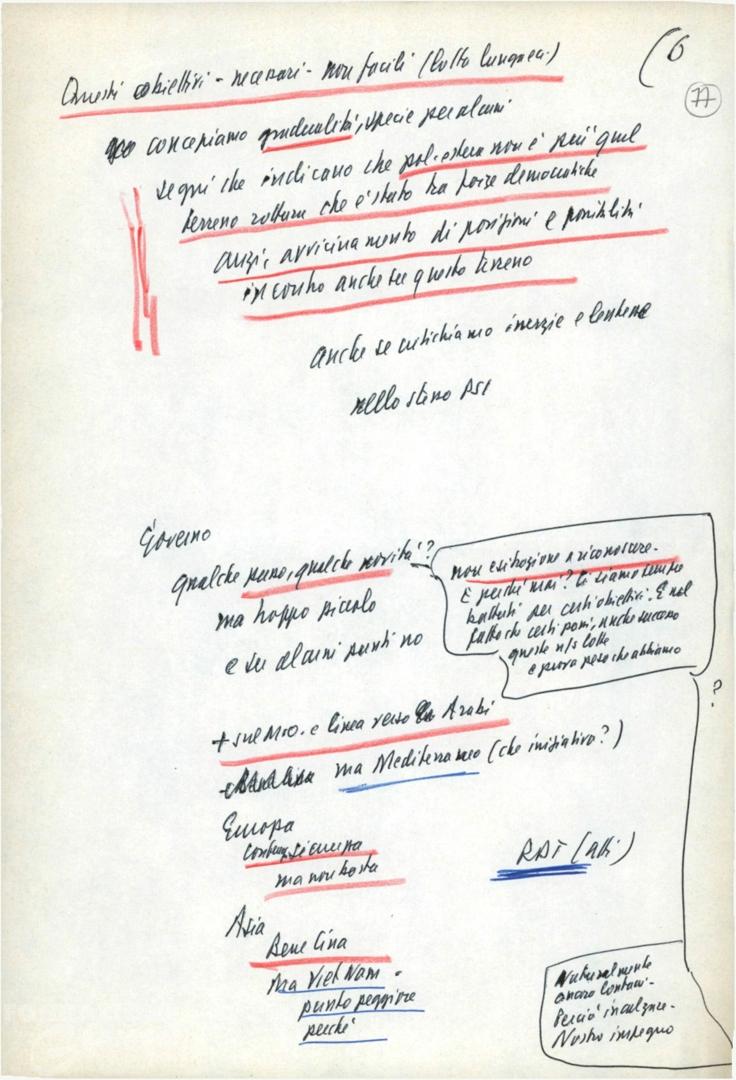 (6
77
Questi obiettivi - necessari - non facili (lotta lunga)
concepiamo gradualità, specie per alcuni
segni che indicano che pol. estera non è più quel
terreno rottura che è stato tra forze democratiche
anzi, avvicinamento di posizioni e possibilità
incontro anche su questo terreno
anche se critichiamo inerzie e lentezze
nello stesso PSI
Governo
qualche passo, qualche novità?
ma troppo piccolo
e su alcuni punti no
non esitazione a riconoscere.
E perché mai? Ci siamo sempre
battuti per certi obiettivi. E nel
fatto che certi passi, anche successo
queste n/s lotte
e prova peso che abbiamo
?
+ sul M.O. e linea verso Arabi
ma Mediterraneo (che iniziativa?)
Europa
sicurezza
ma non basta
RDT (altri)
Asia
Bene Cina
Ma Viet Nam -
punto peggiore
perché
Naturalmente
ancora lontani -
Perciò incalzare -
Nostro impegno